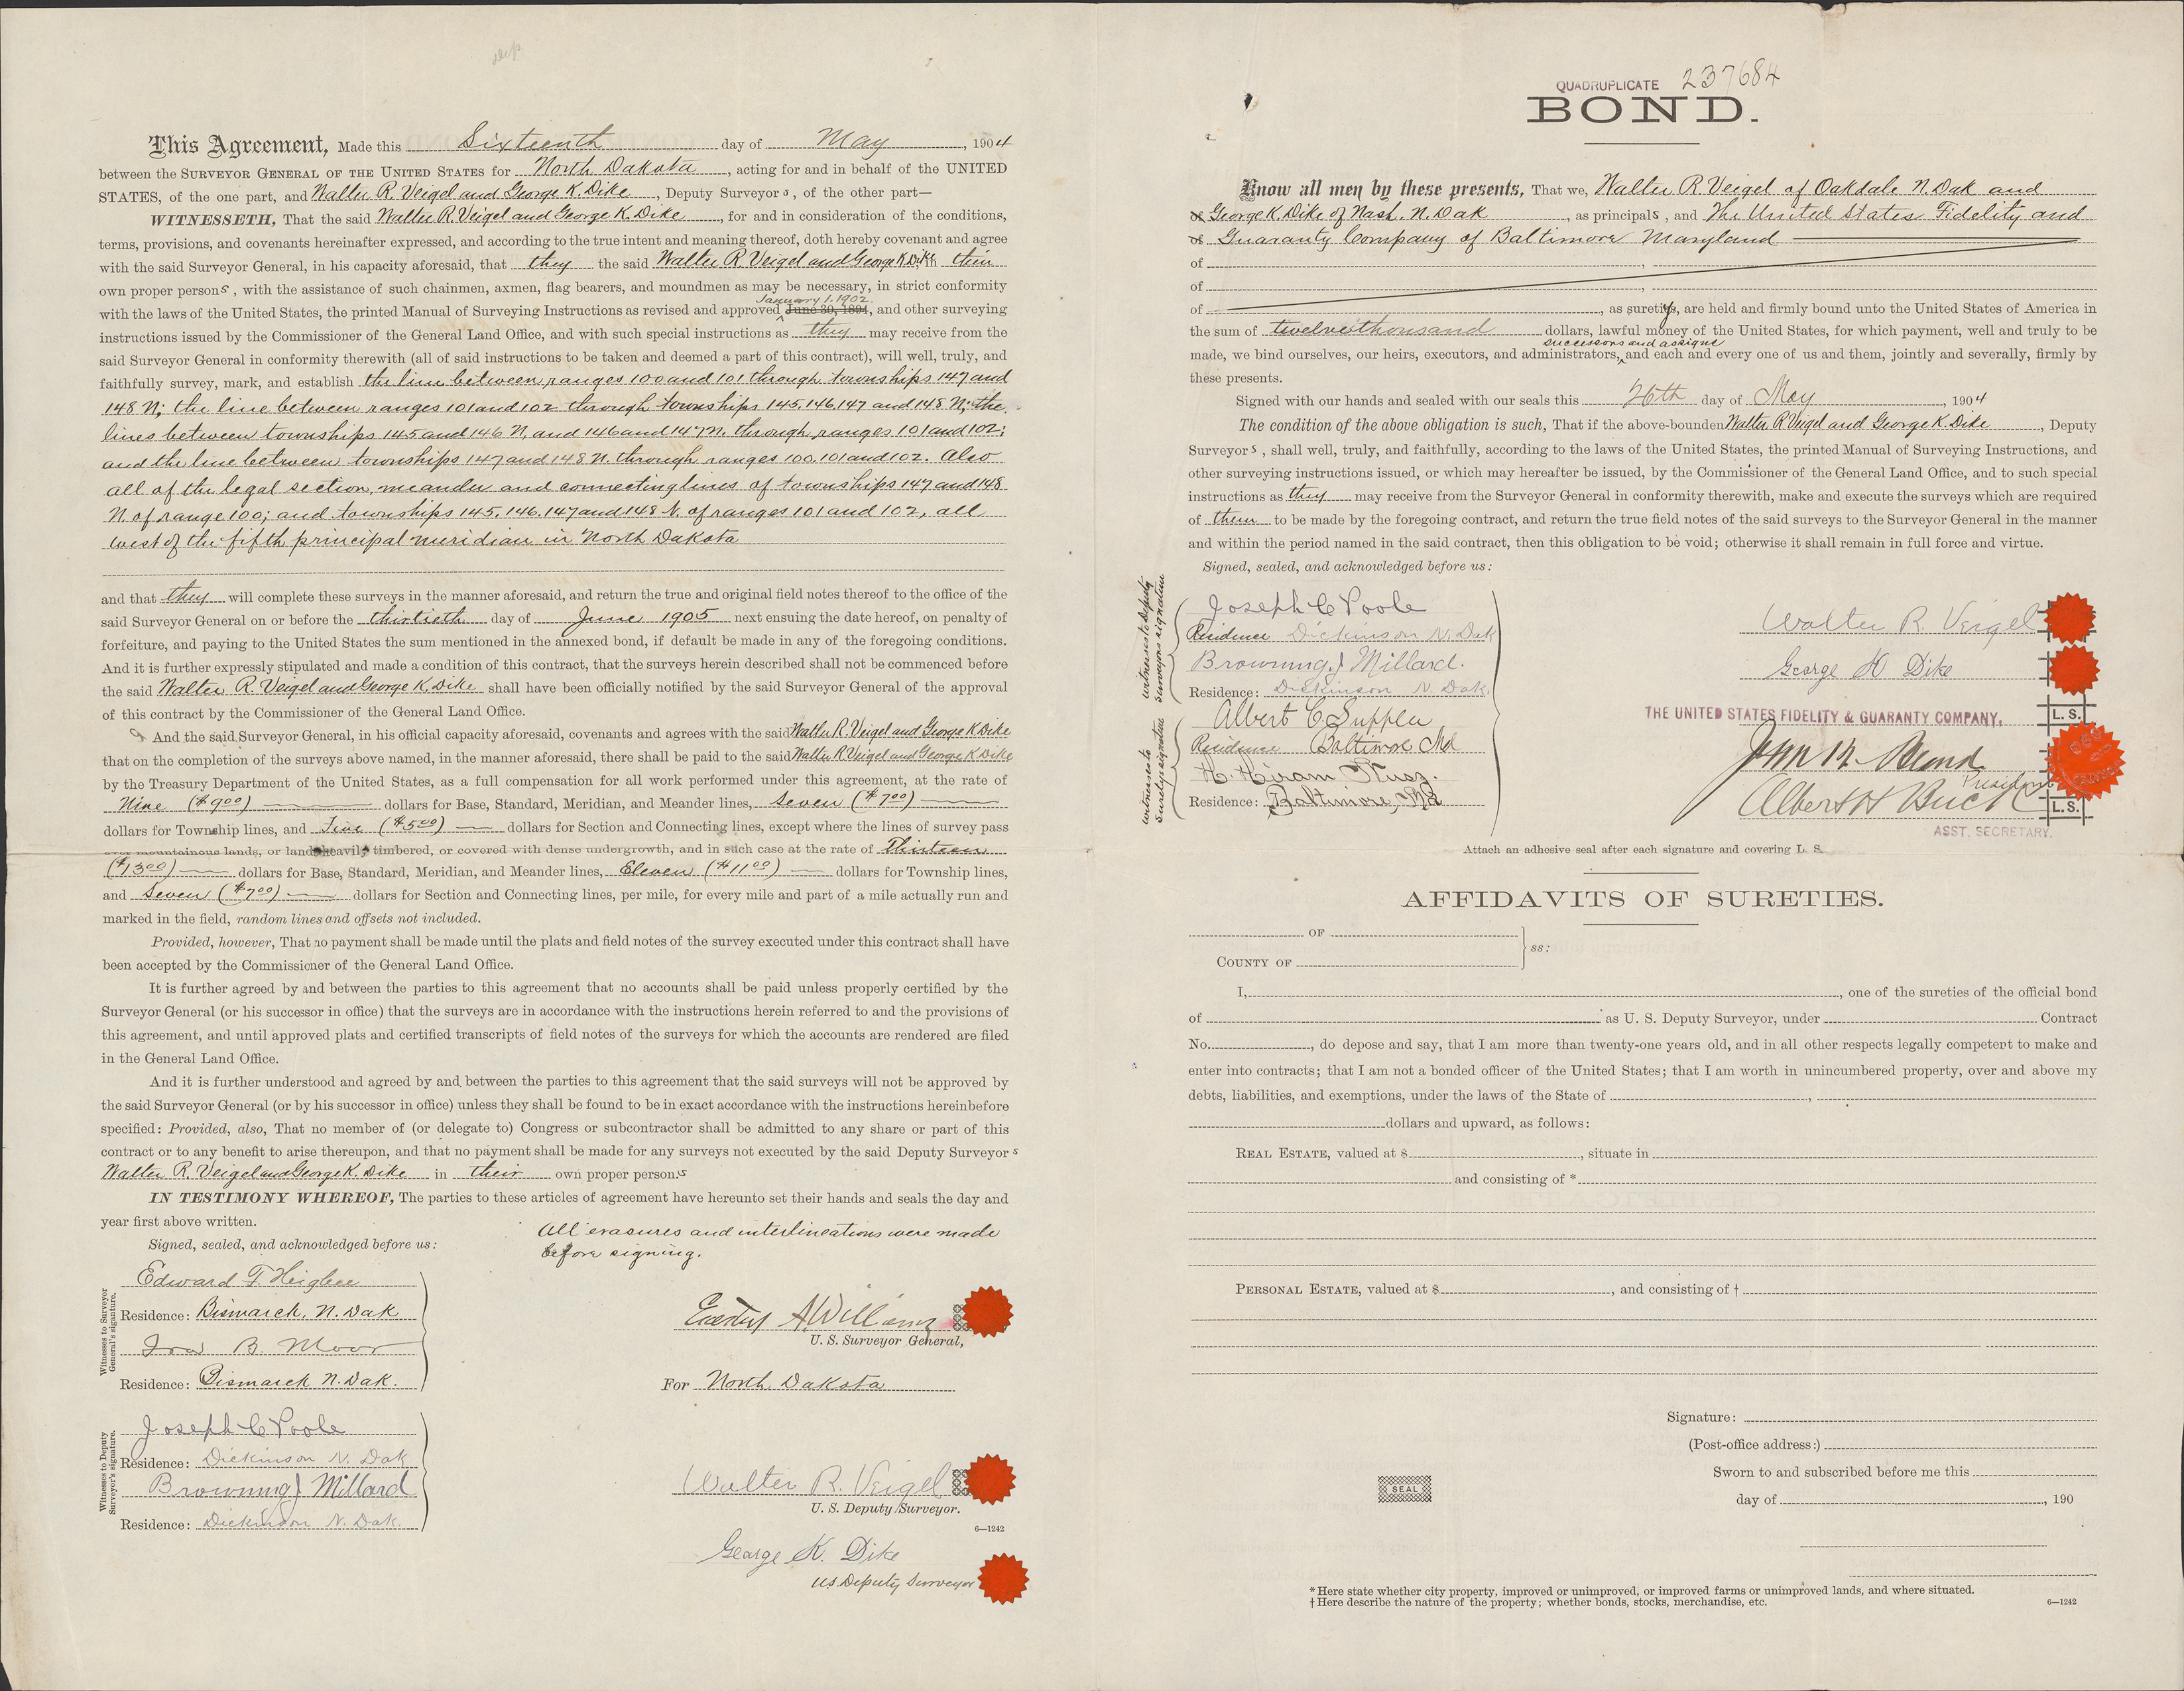 This Agreement, Made this Sixteenth day of May, 1904
between the SURVEYOR GENERAL OF THE UNITED STATES for North Dakota, acting for and in behalf of the UNITED
STATES, of the one part, and Walter R. Veigel and George K. Dike, Deputy Surveyors, of the other part—
WITNESSETH, That the said Walter R. Veigel and George K. Dike, for and in consideration of the conditions,
terms, provisions, and covenants hereinafter expressed, and according to the true intent and meaning thereof, doth hereby covenant and agree
with the said Surveyor General, in his capacity aforesaid, that they the said Walter R. Veigel and George K. Dike their
own proper persons, with the assistance of such chainmen, axmen, flag bearers, and moundmen as may be necessary, in strict conformity
January 1, 1902.
with the laws of the United States, the printed Manual of Surveying Instructions as revised and approved June 30, 1894, and other surveying
instructions issued by the Commissioner of the General Land Office, and with such special instructions as they may receive from the
said Surveyor General in conformity therewith (all of said instructions to be taken and deemed a part of this contract), will well, truly, and
faithfully survey, mark, and establish the line between ranges 100 and 101 through townships 147 and
148 N; the line between ranges 101 and 102 through townships 145, 146, 147 and 148 N; the
lines between townships 145 and 146 N, and 146 and 147 N. through ranges 101 and 102;
and the line between townships 147 and 148 N. through ranges 100, 101 and 102. Also
all of the legal section, meander and connecting lines of townships 147 and 148
N. of range 100; and townships 145, 146, 147 and 148 N. of ranges 101 and 102, all
west of the fifth principal meridian in North Dakota
and that they will complete these surveys in the manner aforesaid, and return the true and original field notes thereof to the office of the
said Surveyor General on or before the thirtieth day of June 1905 next ensuing the date hereof, on penalty of
forfeiture, and paying to the United States the sum mentioned in the annexed bond, if default be made in any of the foregoing conditions.
And it is further expressly stipulated and made a condition of this contract, that the surveys herein described shall not be commenced before
the said Walter R. Veigel and George K. Dike shall have been officially notified by the said Surveyor General of the approval
of this contract by the Commissioner of the General Land Office.
And the said Surveyor General, in his official capacity aforesaid, covenants and agrees with the said Walter R. Veigel and George K Dike
that on the completion of the surveys above named, in the manner aforesaid, there shall be paid to the said Walter R Veigel and George K Dike
by the Treasury Department of the United States, as a full compensation for all work performed under this agreement, at the rate of
Nine ($9.00) dollars for Base, Standard, Meridian, and Meander lines, Seven ($7.00)
dollars for Township lines, and Five ($5.00) dollars for Section and Connecting lines, except where the lines of survey pass
over mountainous lands, or lands heavily timbered, or covered with dense undergrowth, and in such case at the rate of Thirteen
($13.00) dollars for Base, Standard, Meridian, and Meander lines, Eleven ($11.00) dollars for Township lines,
and Seven ($7.00) dollars for Section and Connecting lines, per mile, for every mile and part of a mile actually run and
marked in the field, random lines and offsets not included.
Provided, however, That no payment shall be made until the plats and field notes of the survey executed under this contract shall have
been accepted by the Commissioner of the General Land Office.
It is further agreed by and between the parties to this agreement that no accounts shall be paid unless properly certified by the
Surveyor General (or his successor in office) that the surveys are in accordance with the instructions herein referred to and the provisions of
this agreement, and until approved plats and certified transcripts of field notes of the surveys for which the accounts are rendered are filed
in the General Land Office.
And it is further understood and agreed by and between the parties to this agreement that the said surveys will not be approved by
the said Surveyor General (or by his successor in office) unless they shall be found to be in exact accordance with the instructions hereinbefore
specified: Provided, also, That no member of (or delegate to) Congress or subcontractor shall be admitted to any share or part of this
contract or to any benefit to arise thereupon, and that no payment shall be made for any surveys not executed by the said Deputy Surveyors
Walter R. Veigel and George K. Dike in their own proper persons
IN TESTIMONY WHEREOF, The parties to these articles of agreement have hereunto set their hands and seals the day and
year first above written.
Signed, sealed, and acknowledged before us:
All erasures and interlineations were made
before signing.
Witnesses to Surveyor General's signature.
Edward T. Heigbee
Residence: Bismarck, N. Dak
Ira B. Moor
Residence: Bismarck N. Dak.
Erastus A Williams
U. S. Surveyor General,
For North Dakota
Witnesses to Deputy Surveyor's signature.
Joseph C Poole
Residence: Dickinson N. Dak
Browning J Millard
Residence: Dickinson N. Dak.
Walter R. Veigel
U. S. Deputy Surveyor.
6—1242
George K. Dike
US Deputy Surveyor
QUADRUPLICATE 237684
BOND.
Know all men by these presents, That we, Walter R. Veigel of Oakdale N. Dak and
of George K Dike of Nash, N. Dak, as principals, and The United States Fidelity and
of Guaranty Company of Baltimore Maryland
of
of
of , as surety, are held and firmly bound unto the United States of America in
the sum of twelve thousand dollars, lawful money of the United States, for which payment, well and truly to be
successors and assigns
made, we bind ourselves, our heirs, executors, and administrators, and each and every one of us and them, jointly and severally, firmly by
these presents.
Signed with our hands and sealed with our seals this 26th day of May, 1904
The condition of the above obligation is such, That if the above-bounden Walter R Veigel and George K. Dike, Deputy
Surveyors, shall well, truly, and faithfully, according to the laws of the United States, the printed Manual of Surveying Instructions, and
other surveying instructions issued, or which may hereafter be issued, by the Commissioner of the General Land Office, and to such special
instructions as they may receive from the Surveyor General in conformity therewith, make and execute the surveys which are required
of them to be made by the foregoing contract, and return the true field notes of the said surveys to the Surveyor General in the manner
and within the period named in the said contract, then this obligation to be void; otherwise it shall remain in full force and virtue.
Signed, sealed, and acknowledged before us:
witnesses to Deputy Surveyors signature
Joseph C Poole
Residence Dickinson N. Dak
Browning J Millard.
Residence: Dickinson N. Dak.
witnesses to Suretys signature
Albert C Supplee
Residence Baltimore Md
H. Hiram
Residence: Baltimore, Md
Walter R. Veigel
George K Dike
THE UNITED STATES FIDELITY & GUARANTY COMPANY,
L. S.
John R. Bland
President
Albert H Buck
L. S.
ASST. SECRETARY.
Attach an adhesive seal after each signature and covering L. S.
AFFIDAVITS OF SURETIES.
OF
COUNTY OF ss:
I, , one of the sureties of the official bond
of as U. S. Deputy Surveyor, under Contract
No. , do depose and say, that I am more than twenty-one years old, and in all other respects legally competent to make and
enter into contracts; that I am not a bonded officer of the United States; that I am worth in unincumbered property, over and above my
debts, liabilities, and exemptions, under the laws of the State of ,
dollars and upward, as follows:
REAL ESTATE, valued at $ , situate in
and consisting of *
PERSONAL ESTATE, valued at $ , and consisting of †
Signature:
(Post-office address:)
Sworn to and subscribed before me this
SEAL
day of , 190
* Here state whether city property, improved or unimproved, or improved farms or unimproved lands, and where situated.
† Here describe the nature of the property; whether bonds, stocks, merchandise, etc.
6—1242